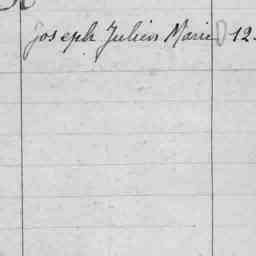 Joseph Julien Marie 12.